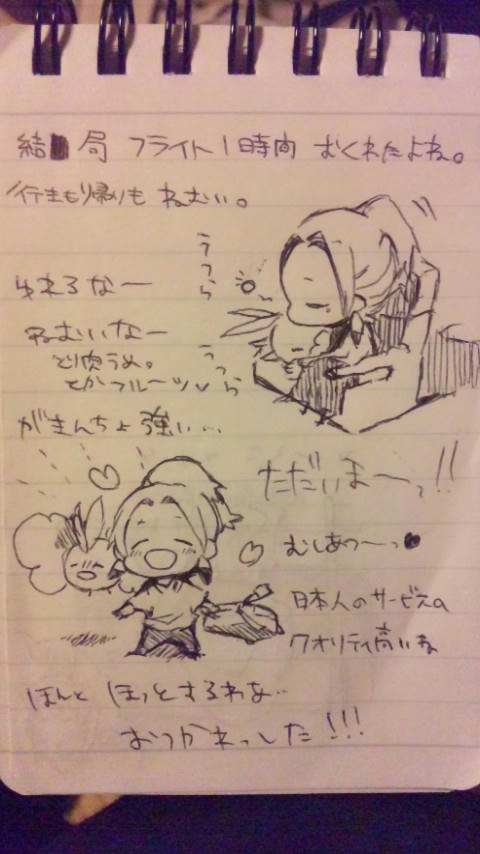 結局 フライト1時間 おくれたよね。
行きも帰りも ねむい。
うつら
ゆれるなー
ねむいなー
うつら
とり肉うめ。
とかフルーツ
がまんちょ強い…
ただいまーっ!!
むしあつ〜っ
日本人のサービスの
クオリティ高いね
ほんと ほっとするわな…
おつかれっした!!!